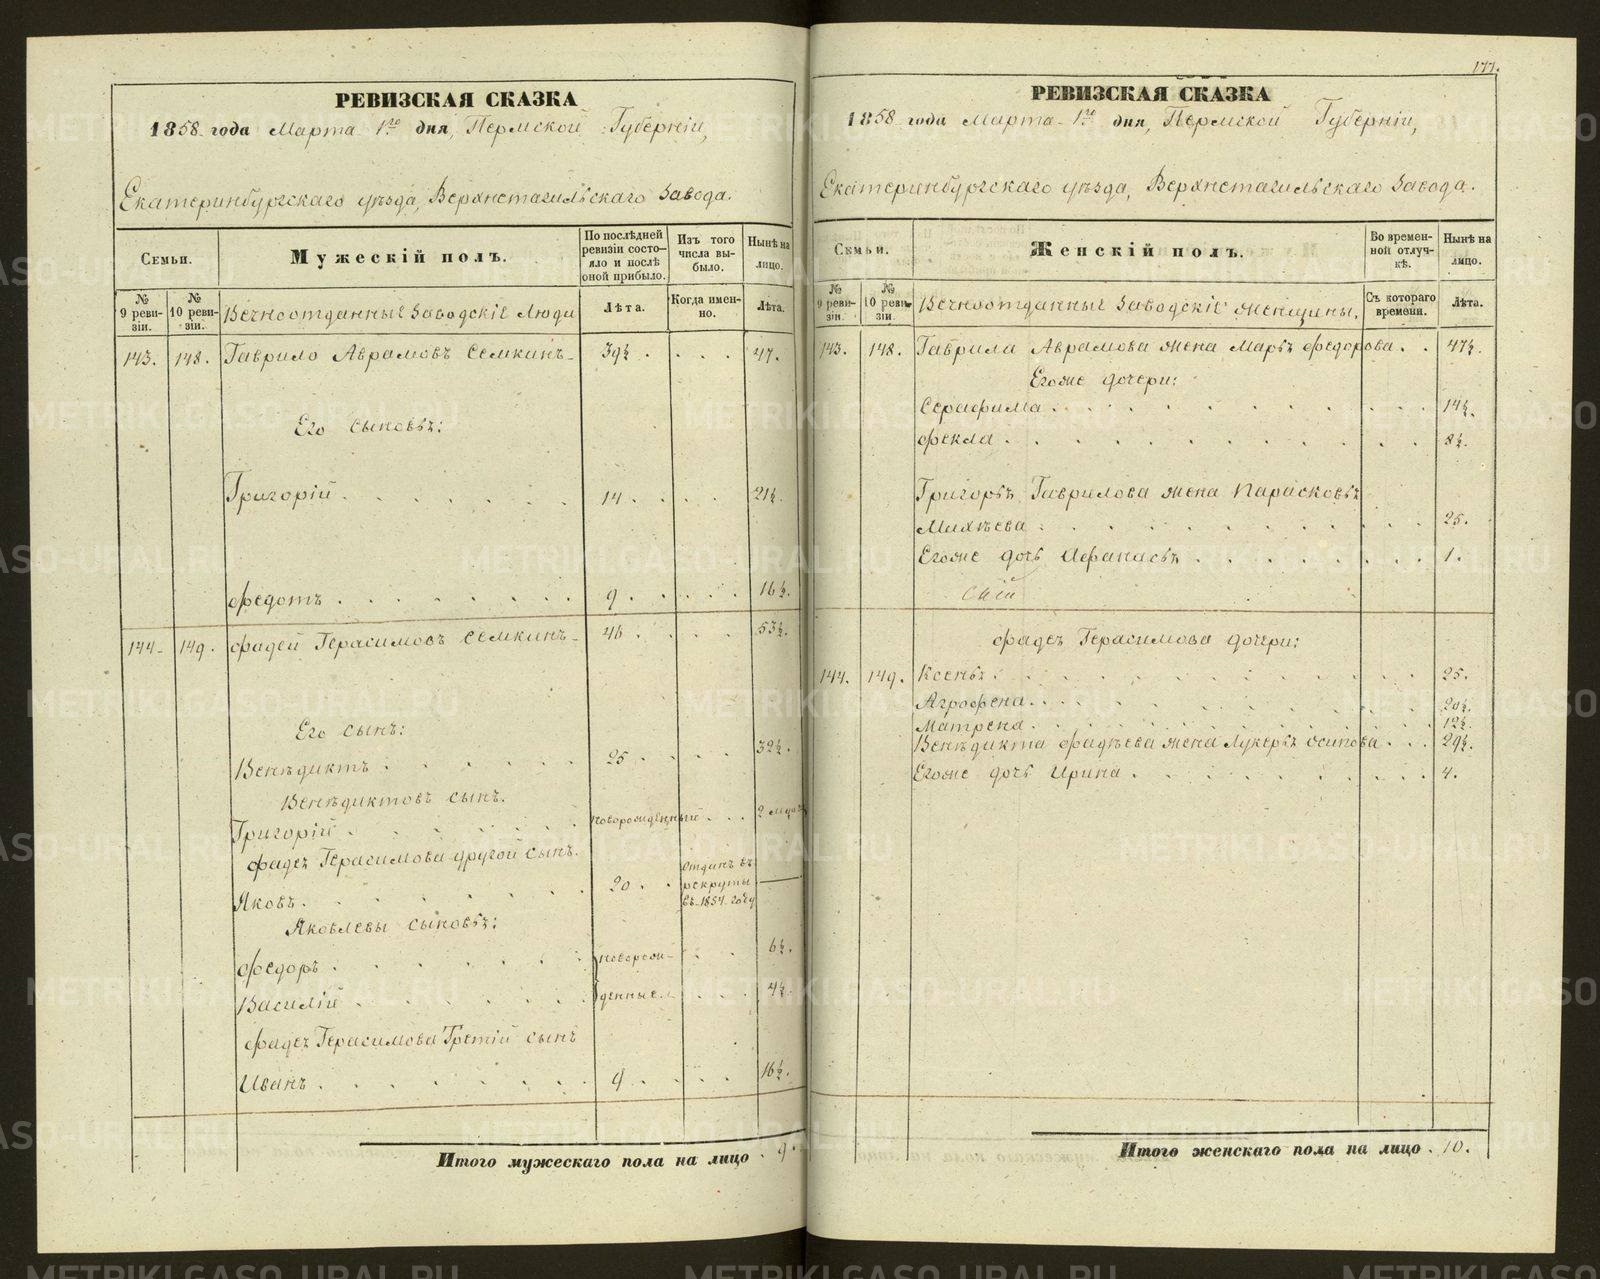 РЕВИЗСКАЯ СКАЗКА
1858 года Марта 1го дня, Пермской Губерніи,
Екатеринбургскаго уѣзда, Верхнетагильскаго Завода.
Семьи.
Мужескій полъ.
По послѣдней ревизіи состояло и послѣ оной прибыло.
Изъ того числа выбыло.
Нынѣ на лицо.
№ 9 ревизіи.
№ 10 ревизіи.
Вечноотданныѣ Заводскіѣ Люди
Лѣта.
Когда именно.
Лѣта.
143. 148. Гаврило Аврамовъ Семкинъ 39½ . . . . 47.
Его сыновья:
Григорій . . . . . . . 14 . . . . 21½.
Федотъ . . . . . . . . 9 . . . . 16½.
144. 149. Фадей Герасимовъ Семкинъ 46 . . . . 53½.
Его сынъ:
Венѣдиктъ . . . . . . 25 . . . . 32½.
Венѣдиктовъ сынъ.
Григорій . . . . . . новорожденный . . . 2 мѣся
Фадея Герасимова другой сынъ.
Яковъ . . . . . . 20 . . отданъ въ рекруты въ 1854 году —
Яковлевы сыновья:
Федоръ . . . . . . новорож- . . . 6½.
Василій . . . . . . денные . . . 4½.
Фадея Герасимова Третій сынъ
Иванъ . . . . . . . . 9 . . . . 16½.
Итого мужескаго пола на лицо . 9.
177.
РЕВИЗСКАЯ СКАЗКА
1858 года Марта 1го дня, Пермской Губерніи,
Екатеринбургскаго уѣзда, Верхнетагильскаго Завода.
Семьи.
Женскій полъ.
Во временной отлучкѣ.
Нынѣ на лицо.
№ 9 ревизіи.
№ 10 ревизіи.
Вечноотданныѣ Заводскіѣ женщины,
Съ котораго времени.
Лѣта.
143. 148. Гаврила Аврамова жена Марья Федорова . . 47½.
Егоже дочери:
Серафима . . . . . . . . . . 14½.
Фекла . . . . . . . . . . 8½.
Григорья Гаврилова жена Парасковья
Михѣева . . . . . . . . . . 25.
Егоже дочь Афанасья . . . . . . . . 1.
Фадея Герасимова дочери:
144. 149. Ксенья . . . . . . . . . . 25.
Агрофена . . . . . . . . . . 20½.
Матрена . . . . . . . . . . 12½.
Венѣдикта Фадѣева жена Лукерья Осипова . . . 29½.
Егоже дочь Ирина . . . . . . . . 4.
Итого женскаго пола на лицо . 10.
METRIKI.GASO-URAL.RU